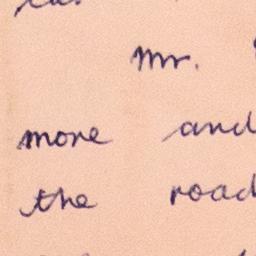 Mr.
more and
the road